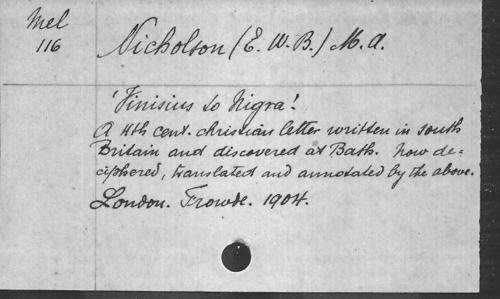 Mel
116
Nicholson (E. W. B.) M. A.
'Vinisius to Nigra'.
A 4th cent. christian letter written in south
Britain and discovered at Bath. now de=
ciphered, translated and annotated by the above.
London. Frowde. 1904.